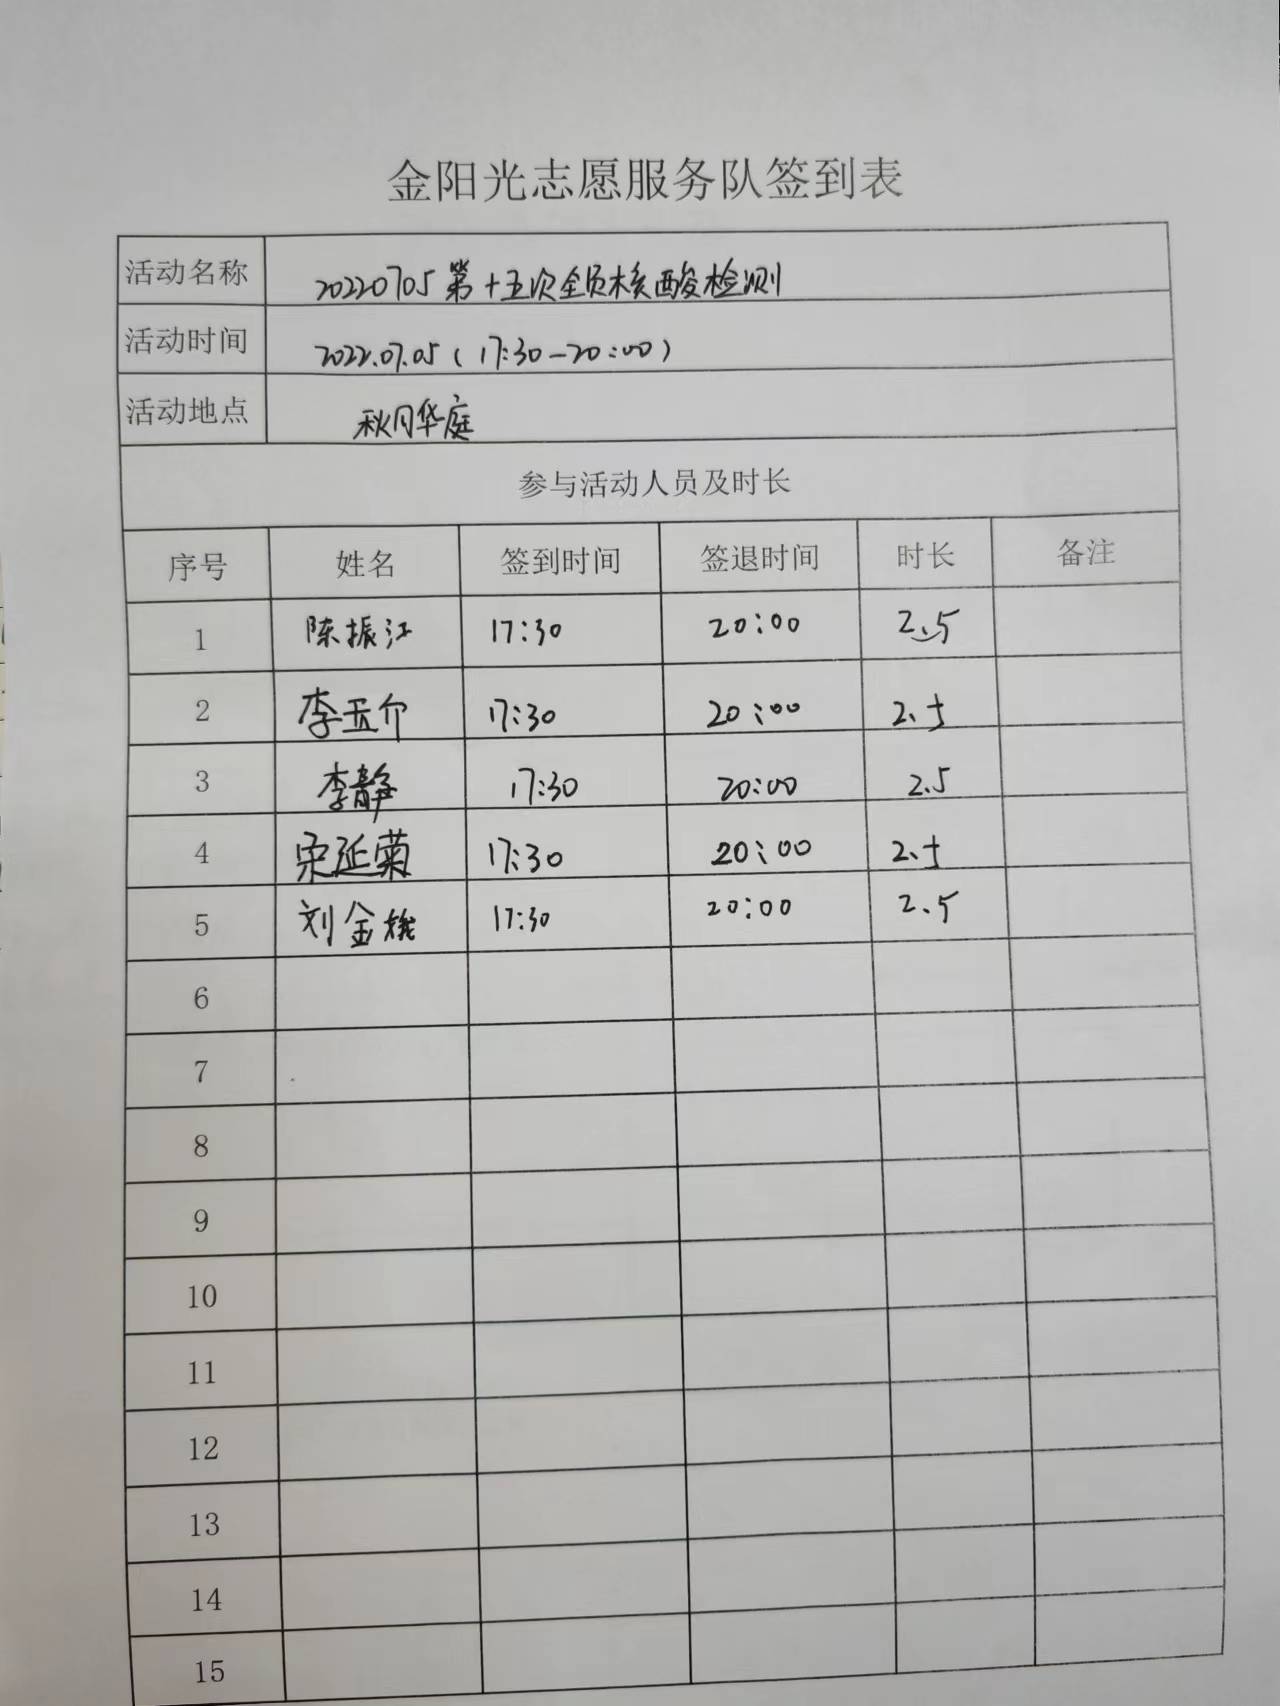 金阳光志愿服务队签到表
活动名称 20220705第十五次全员核酸检测
活动时间 2022.07.05(17:30-20:00)
活动地点 秋月华庭
参与活动人员及时长
序号 姓名 签到时间 签退时间 时长 备注
1 陈振江 17:30 20:00 2.5
2 李亚介 17:30 20:00 2.5
3 李静 17:30 20:00 2.5
4 宋延菊 17:30 20:00 2.5
5 刘金 17:30 20:00 2.5
6
7
8
9
10
11
12
13
14
15